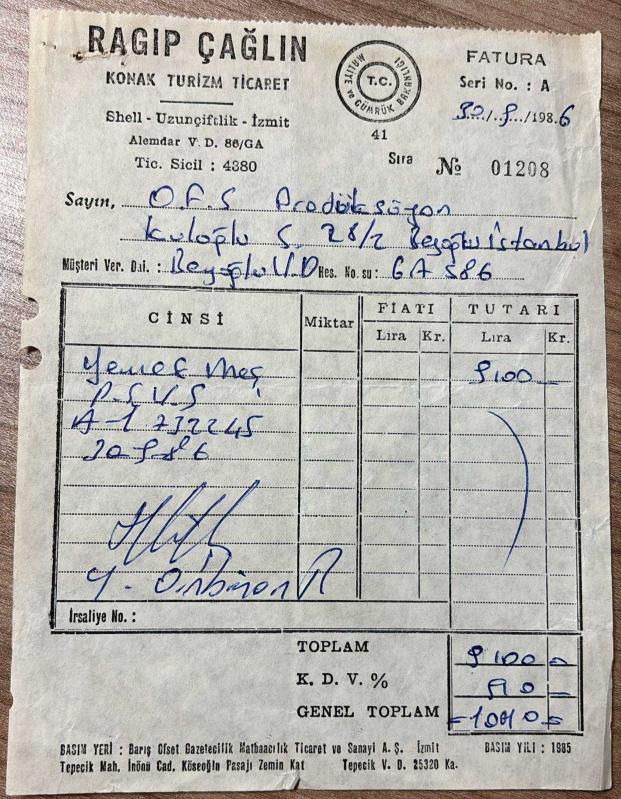 RAGIP ÇAĞLIN
KONAK TURİZM TİCARET
Shell - Uzunçiftlik - İzmit
Alemdar V. D. 86/GA
Tic. Sicil : 4380
T.C.
MALİYE ve GÜMRÜK BAKANLIĞI
41
FATURA
Seri No. : A
30./.9./198.6
Sıra № 01208
Sayın, O.F.S Prodüksüyon
Kuloğlu S. 28/2 Beyoğlu İstanbul
Müşteri Ver. Dai. : Beyoğlu V.D Hes. No.su : 6A 586
CİNSİ Miktar FİATI TUTARI
Lira Kr. Lira Kr.
Yemek Meş 9100
A-1 732245
30-9-86
İrsaliye No. :
TOPLAM 9100
K. D. V. % 910
GENEL TOPLAM 10010
BASIM YERİ : Barış Ofset Gazetecilik Matbaacılık Ticaret ve Sanayi A. Ş. İzmit BASIM YILI : 1985
Tepecik Mah. İnönü Cad. Köseoğlu Pasajı Zemin Kat Tepecik V. D. 25320 Ka.